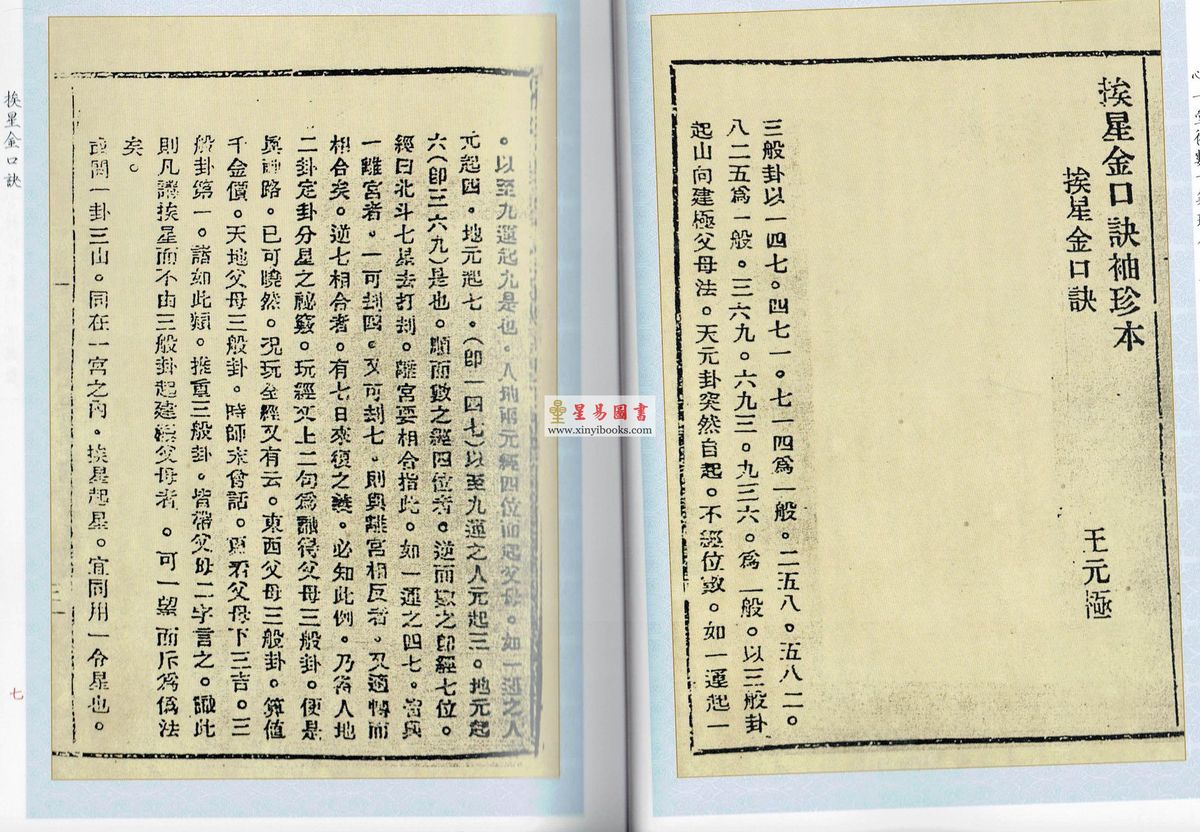 挨星金口訣袖珍本
挨星金口訣
王元極
三般卦以一四七。四七一。七一四爲一般。二五八。五八二。
八二五爲一般。三六九。六九三。九三六。爲一般。以三般卦
起山向建極父母法。天元卦突然自起。不經位數。如一運起一
。以至九運起九是也。人地兩元經四位而起父母。如一運之人
元起四。地元起七。(卽一四七)以至九運之人元起三。地元起
六(卽三六九)是也。順而數之經四位者。逆而數之卽經七位。
經曰北斗七星去打刦。離宮要相合指此。如一運之四七。皆與
一離宮者。一可刦四。又可刦七。則與離宮相反者。又適轉而
相合矣。逆七相合者。有七日來復之義。必知此例。乃爲人地
二卦定卦分星之秘竅。玩經文上二句爲識得父母三般卦。便是
眞神路。已可曉然。况玩全經又有云。東西父母三般卦。算值
千金價。天地父母三般卦。時師未會話。更看父母下三吉。三
般卦第一。諸如此類。推重三般卦。皆帶父母二字言之。識此
則凡講挨星而不由三般卦起建極父母者。可一望而斥爲僞法
矣。
或問一卦三山。同在一宮之內。挨星起星。宜同用一令星也。
一
挨星金口訣
七
星易圖書
www.xinyibooks.com